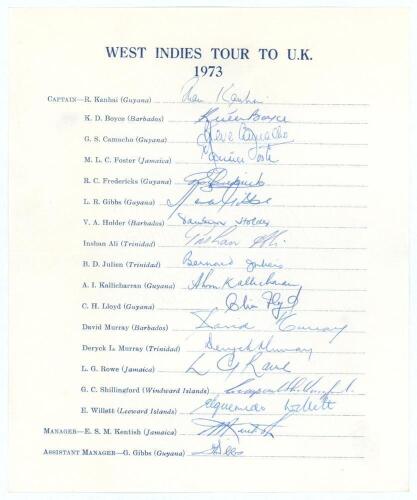 WEST INDIES TOUR TO U.K.
1973
CAPTAIN—R. Kanhai (Guyana) Rohan Kanhai
K. D. Boyce (Barbados) Keith Boyce
G. S. Camacho (Guyana) Steve Camacho
M. L. C. Foster (Jamaica) Maurice Foster
R. C. Fredericks (Guyana)
L. R. Gibbs (Guyana) Lance Gibbs
V. A. Holder (Barbados) Vanburn Holder
Inshan Ali (Trinidad) Inshan Ali
B. D. Julien (Trinidad) Bernard Julien
A. I. Kallicharran (Guyana) Alvin Kallicharran
C. H. Lloyd (Guyana) Clive Lloyd
David Murray (Barbados) David Murray
Deryck L. Murray (Trinidad) Deryck Murray
L. G. Rowe (Jamaica) L G Rowe
G. C. Shillingford (Windward Islands)
E. Willett (Leeward Islands) Elquemedo Willett
MANAGER—E. S. M. Kentish (Jamaica) Kentish
ASSISTANT MANAGER—G. Gibbs (Guyana) Gibbs